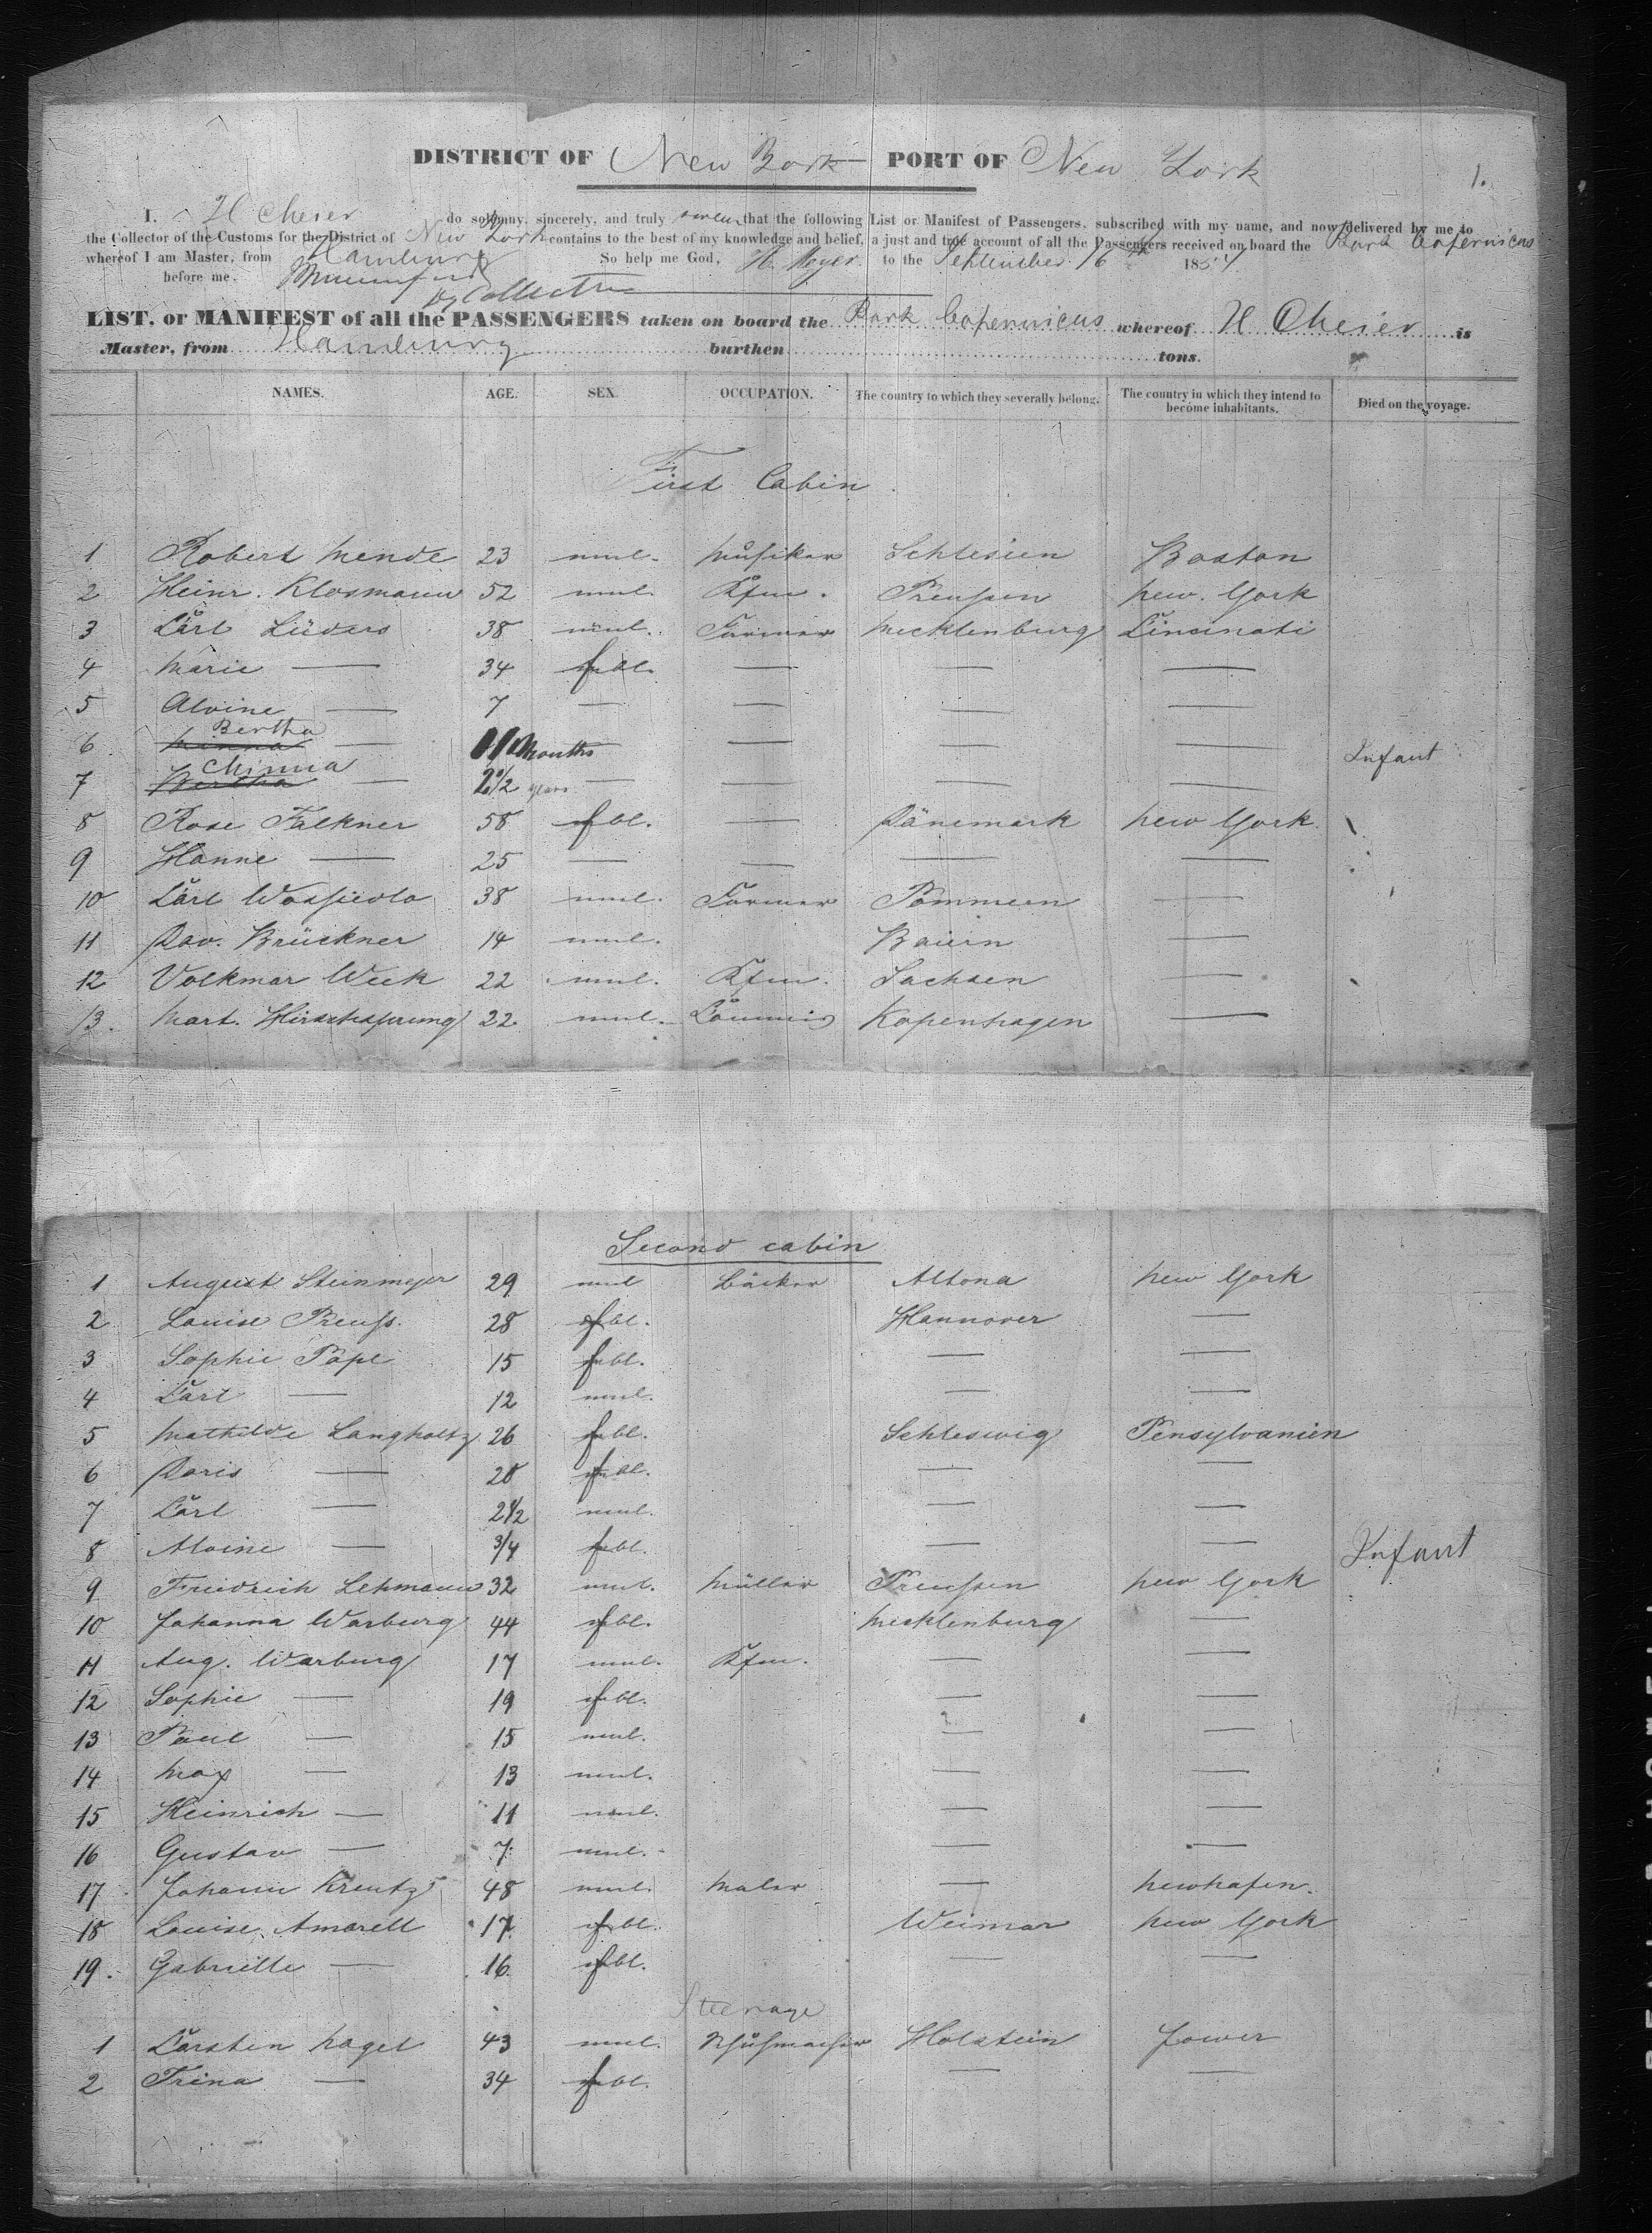 DISTRICT OF New York PORT OF New York
1.
I, H Meier do solemny, sincerely, and truly swear that the following List or Manifest of Passengers, subscribed with my name, and now delivered by me to
the Collector of the Customs for the District of New York contains to the best of my knowledge and belief, a just and true account of all the Passengers received on board the Bark Copernicus
whereof I am Master, from Hamburg So help me God, H. Meyer. to the September 16th 1854
before me.
Dy Collector
LIST, or MANIFEST of all the PASSENGERS taken on board the Bark Copernicus whereof H Meier is
Master, from Hamburg burthen tons.
NAMES. AGE. SEX. OCCUPATION. The country to which they severally belong. The country in which they intend to become inhabitants. Died on the voyage.
First Cabin
1 Robert Mende 23 mnl. Musiker Schlesien Boston
2 Heinr. Klosmann 52 mnl. Kfm. Preussen New. York
3 Carl Lüders 38 mnl. Farmer Mecklenburg Cincinati
4 Marie — 34 fbl. — — —
5 Alvine — 7 — — — —
6 Minna Bertha — 11 Months — — — — Infant
7 Bertha Minna — 2 1/2 years — — — —
8 Rose Falkner 58 fbl. — Dänemark New York
9 Hanne — 25 — — — —
10 Carl 38 mnl. Farmer Pommern —
11 Dav. Brückner 14 mnl. Baiern —
12 Volkmar Week 22 mnl. Kfm. Sachsen —
13. Mart. Hirschsprung 22 mnl. Commis Kopenhagen —
Second cabin
1 August Steinmeyer 29 mnl Bäcker Altona New York
2 Louise Preuss. 28 fbl. Hannover —
3 Sophie Pape 15 fbl. — —
4 Carl — 12 mnl. — —
5 Mathilde Langholtz 26 fbl. Schleswig Pensylvanien
6 Doris — 28 fbl. — —
7 Carl — 2 1/2 mnl. — —
8 Alvine — 3/4 fbl. — — Infant
9 Friedrich Lehmann 32 mnl. Müller Preussen New York
10 Johanna Warburg 44 fbl. Mecklenburg —
11 Aug. Warburg 17 mnl. Kfm. — —
12 Sophie — 19 fbl. — —
13 Paul — 15 mnl. — —
14 Max — 13 mnl. — —
15 Heinrich — 11 mnl. — —
16 Gustav — 7. mnl. — —
17 Johann Kreutz 48 mnl. Maler — Newhafen.
18 Louise Amarell 17. fbl. Weimar New York
19. Gabrielle — 16. fbl. — —
Steerage
1 Carsten Nagel 43 mnl. Schuhmacher Holstein Jower
2 Trina — 34 fbl. — —